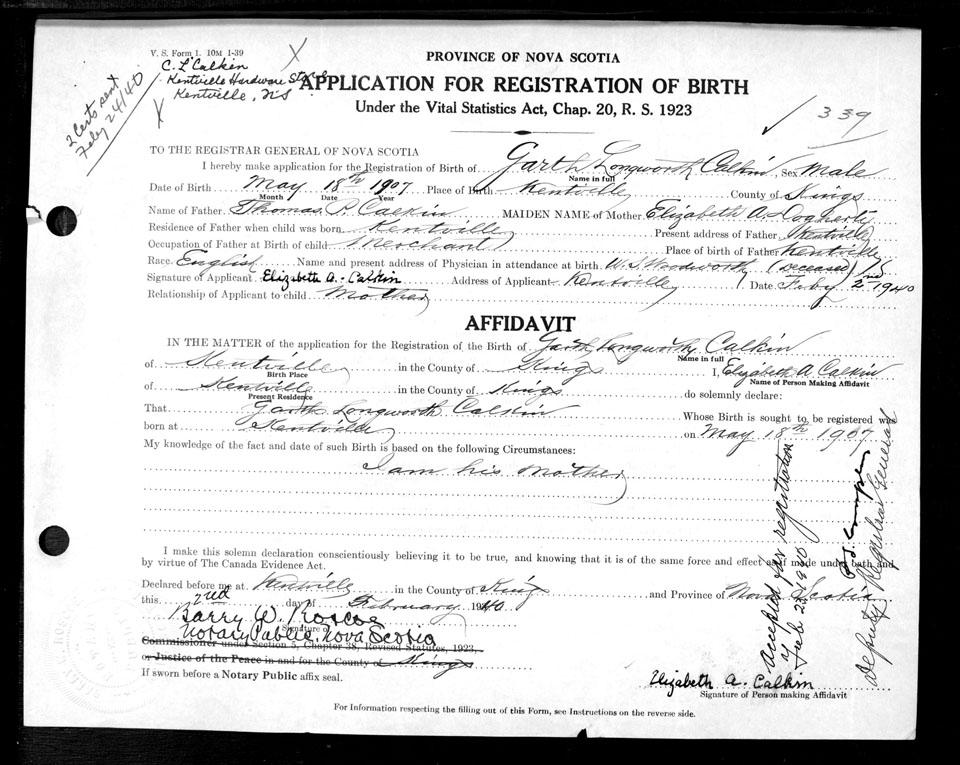 V. S. Form 1. 10M 1-39
C. L Calkin
Kentville Hardware Store
Kentville, NS
2 Certs sent
Feby 24/40
PROVINCE OF NOVA SCOTIA
APPLICATION FOR REGISTRATION OF BIRTH
Under the Vital Statistics Act, Chap. 20, R. S. 1923
339
TO THE REGISTRAR GENERAL OF NOVA SCOTIA
I hereby make application for the Registration of Birth of Garth Longworth Calkin Sex Male
Name in full
Date of Birth May 18th 1907 Place of Birth Kentville County of Kings
Month Date Year
Name of Father Thomas P. Calkin MAIDEN NAME of Mother Elizabeth A. Dogherty
Residence of Father when child was born Kentville Present address of Father Kentville
Occupation of Father at Birth of child Merchant Place of birth of Father Kentville
Race English Name and present address of Physician in attendance at birth W. S. Woodworth (deceased) NS
Signature of Applicant Elizabeth A. Calkin Address of Applicant Kentville Date Feby 2nd 1940
Relationship of Applicant to child Mother
AFFIDAVIT
IN THE MATTER of the application for the Registration of the Birth of Garth Longworth Calkin
Name in full
of Kentville in the County of Kings I, Elizabeth A Calkin
Birth Place Name of Person Making Affidavit
of Kentville in the County of Kings do solemnly declare:
Present Residence
That Garth Longworth Calkin Whose Birth is sought to be registered was
born at Kentville on May 18th 1907
My knowledge of the fact and date of such Birth is based on the following Circumstances:
I am his Mother
I make this solemn declaration conscientiously believing it to be true, and knowing that it is of the same force and effect as if made under oath and
by virtue of The Canada Evidence Act.
Declared before me at Kentville in the County of King and Province of Nova Scotia
this 2nd day of February 1940
Barry W. Roscoe
Signature of
Notary Public. Nova Scotia
Commissioner under Section 5, Chapter 38, Revised Statutes, 1923,
or Justice of the Peace in and for the County of Kings
If sworn before a Notary Public affix seal.
Elizabeth A. Calkin
Signature of Person making Affidavit
Accepted for registration
Feb. 23, 1940
Deputy Registrar General
For Information respecting the filling out of this Form, see Instructions on the reverse side.